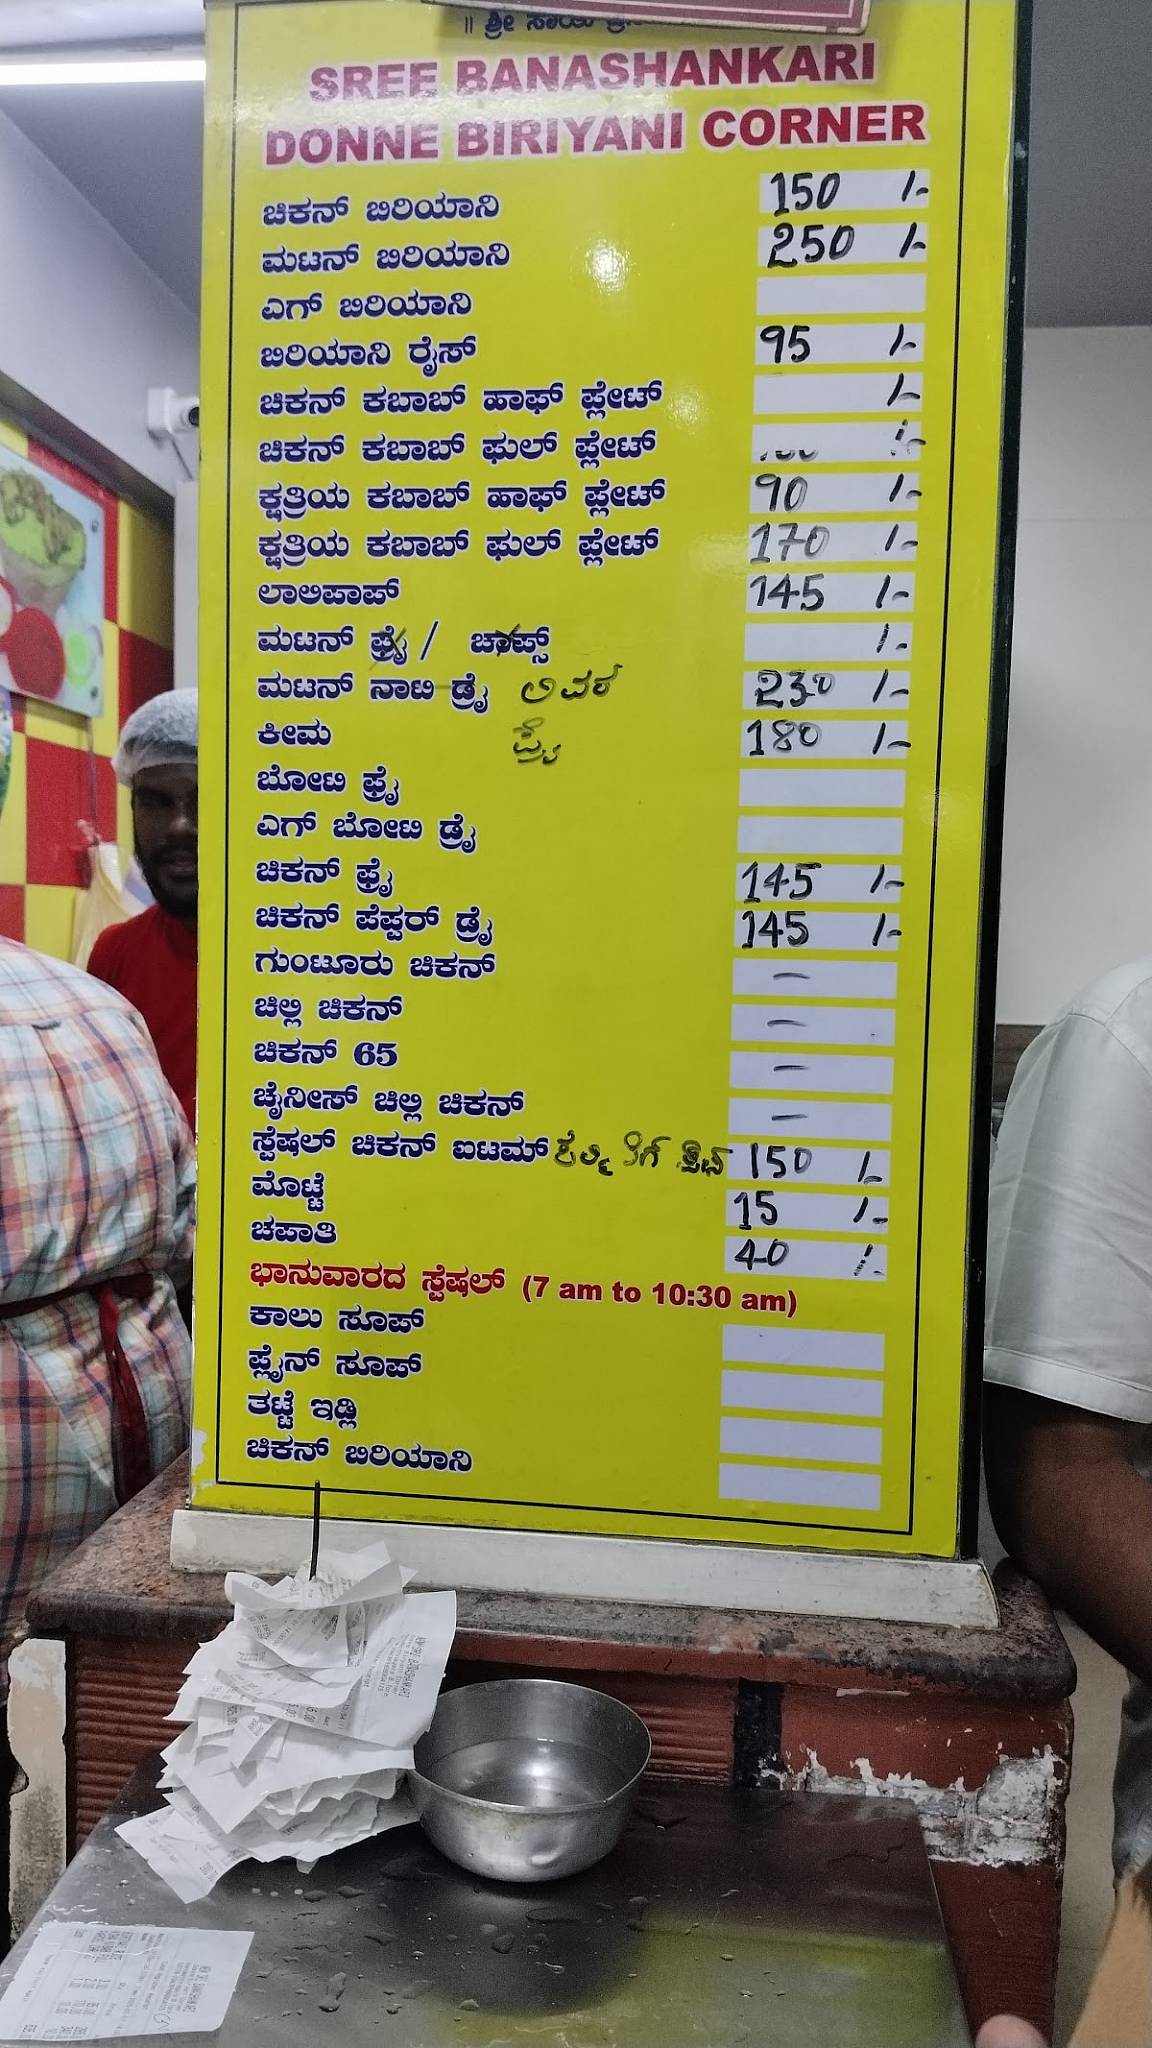 ॥ ಶ್ರೀ ಸಾಯಿ
SREE BANASHANKARI
DONNE BIRIYANI CORNER
ಚಿಕನ್ ಬಿರಿಯಾನಿ 150 /-
ಮಟನ್ ಬಿರಿಯಾನಿ 250 /-
ಎಗ್ ಬಿರಿಯಾನಿ
ಬಿರಿಯಾನಿ ರೈಸ್ 95 /-
ಚಿಕನ್ ಕಬಾಬ್ ಹಾಫ್ ಪ್ಲೇಟ್ /-
ಚಿಕನ್ ಕಬಾಬ್ ಫುಲ್ ಪ್ಲೇಟ್ /-
ಕ್ಷತ್ರಿಯ ಕಬಾಬ್ ಹಾಫ್ ಪ್ಲೇಟ್ 90 /-
ಕ್ಷತ್ರಿಯ ಕಬಾಬ್ ಫುಲ್ ಪ್ಲೇಟ್ 170 /-
ಲಾಲಿಪಾಪ್ 145 /-
ಮಟನ್ ಫ್ರೈ / ಚಾಪ್ಸ್ /-
ಮಟನ್ ನಾಟಿ ಡ್ರೈ 230 /-
ಕೀಮ 180 /-
ಬೋಟಿ ಫ್ರೈ
ಎಗ್ ಬೋಟಿ ಡ್ರೈ
ಚಿಕನ್ ಫ್ರೈ 145 /-
ಚಿಕನ್ ಪೆಪ್ಪರ್ ಡ್ರೈ 145 /-
ಗುಂಟೂರು ಚಿಕನ್ -
ಚಿಲ್ಲಿ ಚಿಕನ್ -
ಚಿಕನ್ 65 -
ಚೈನೀಸ್ ಚಿಲ್ಲಿ ಚಿಕನ್ -
ಸ್ಪೆಷಲ್ ಚಿಕನ್ ಐಟಮ್ 150 /-
ಮೊಟ್ಟೆ 15 /-
ಚಪಾತಿ 40 /-
ಭಾನುವಾರದ ಸ್ಪೆಷಲ್ (7 am to 10:30 am)
ಕಾಲು ಸೂಪ್
ಪ್ಲೈನ್ ಸೂಪ್
ತಟ್ಟೆ ಇಡ್ಲಿ
ಚಿಕನ್ ಬಿರಿಯಾನಿ